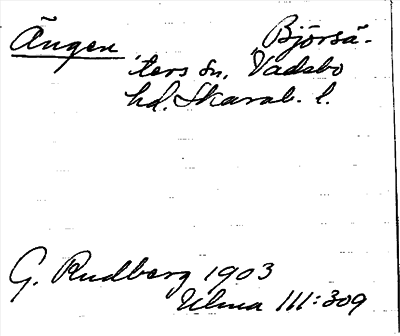 Ängen Björsä-
ters sn, Vadsbo
hd. Skarab. l.
G. Rudberg 1903
Ulma III:309